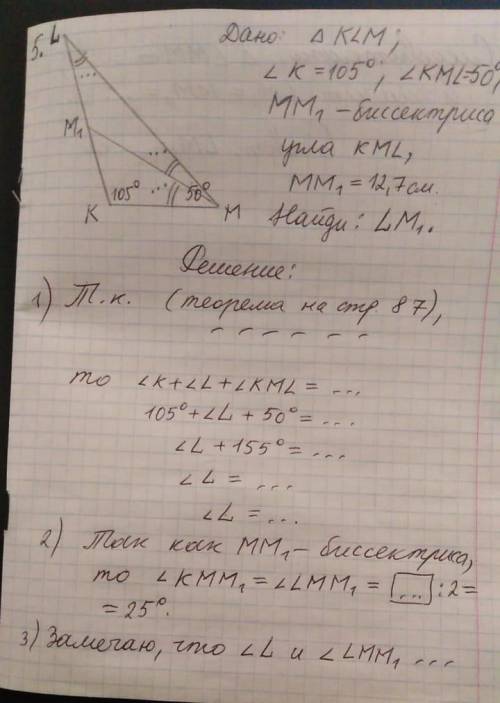 5. L
Дано: △ KLM;
∠ K = 105°; ∠KML=50°,
MM₁ - биссектриса
угла KML,
MM₁ = 12,7 см.
Найди: LM₁.
...
M₁
...
...
105°
50°
K
M
Решение:
1) Т.к. (теорема на стр 87),
_ _ _ _ _ _
то ∠K+∠L+∠KML = ...
105°+∠L + 50° = ...
∠L + 155° = ...
∠L = ...
∠L = ...
2) Так как MM₁ - биссектриса,
то ∠KMM₁ = ∠LMM₁ = [...] : 2 =
= 25°.
3) Замечаю, что ∠L и ∠LMM₁ ...